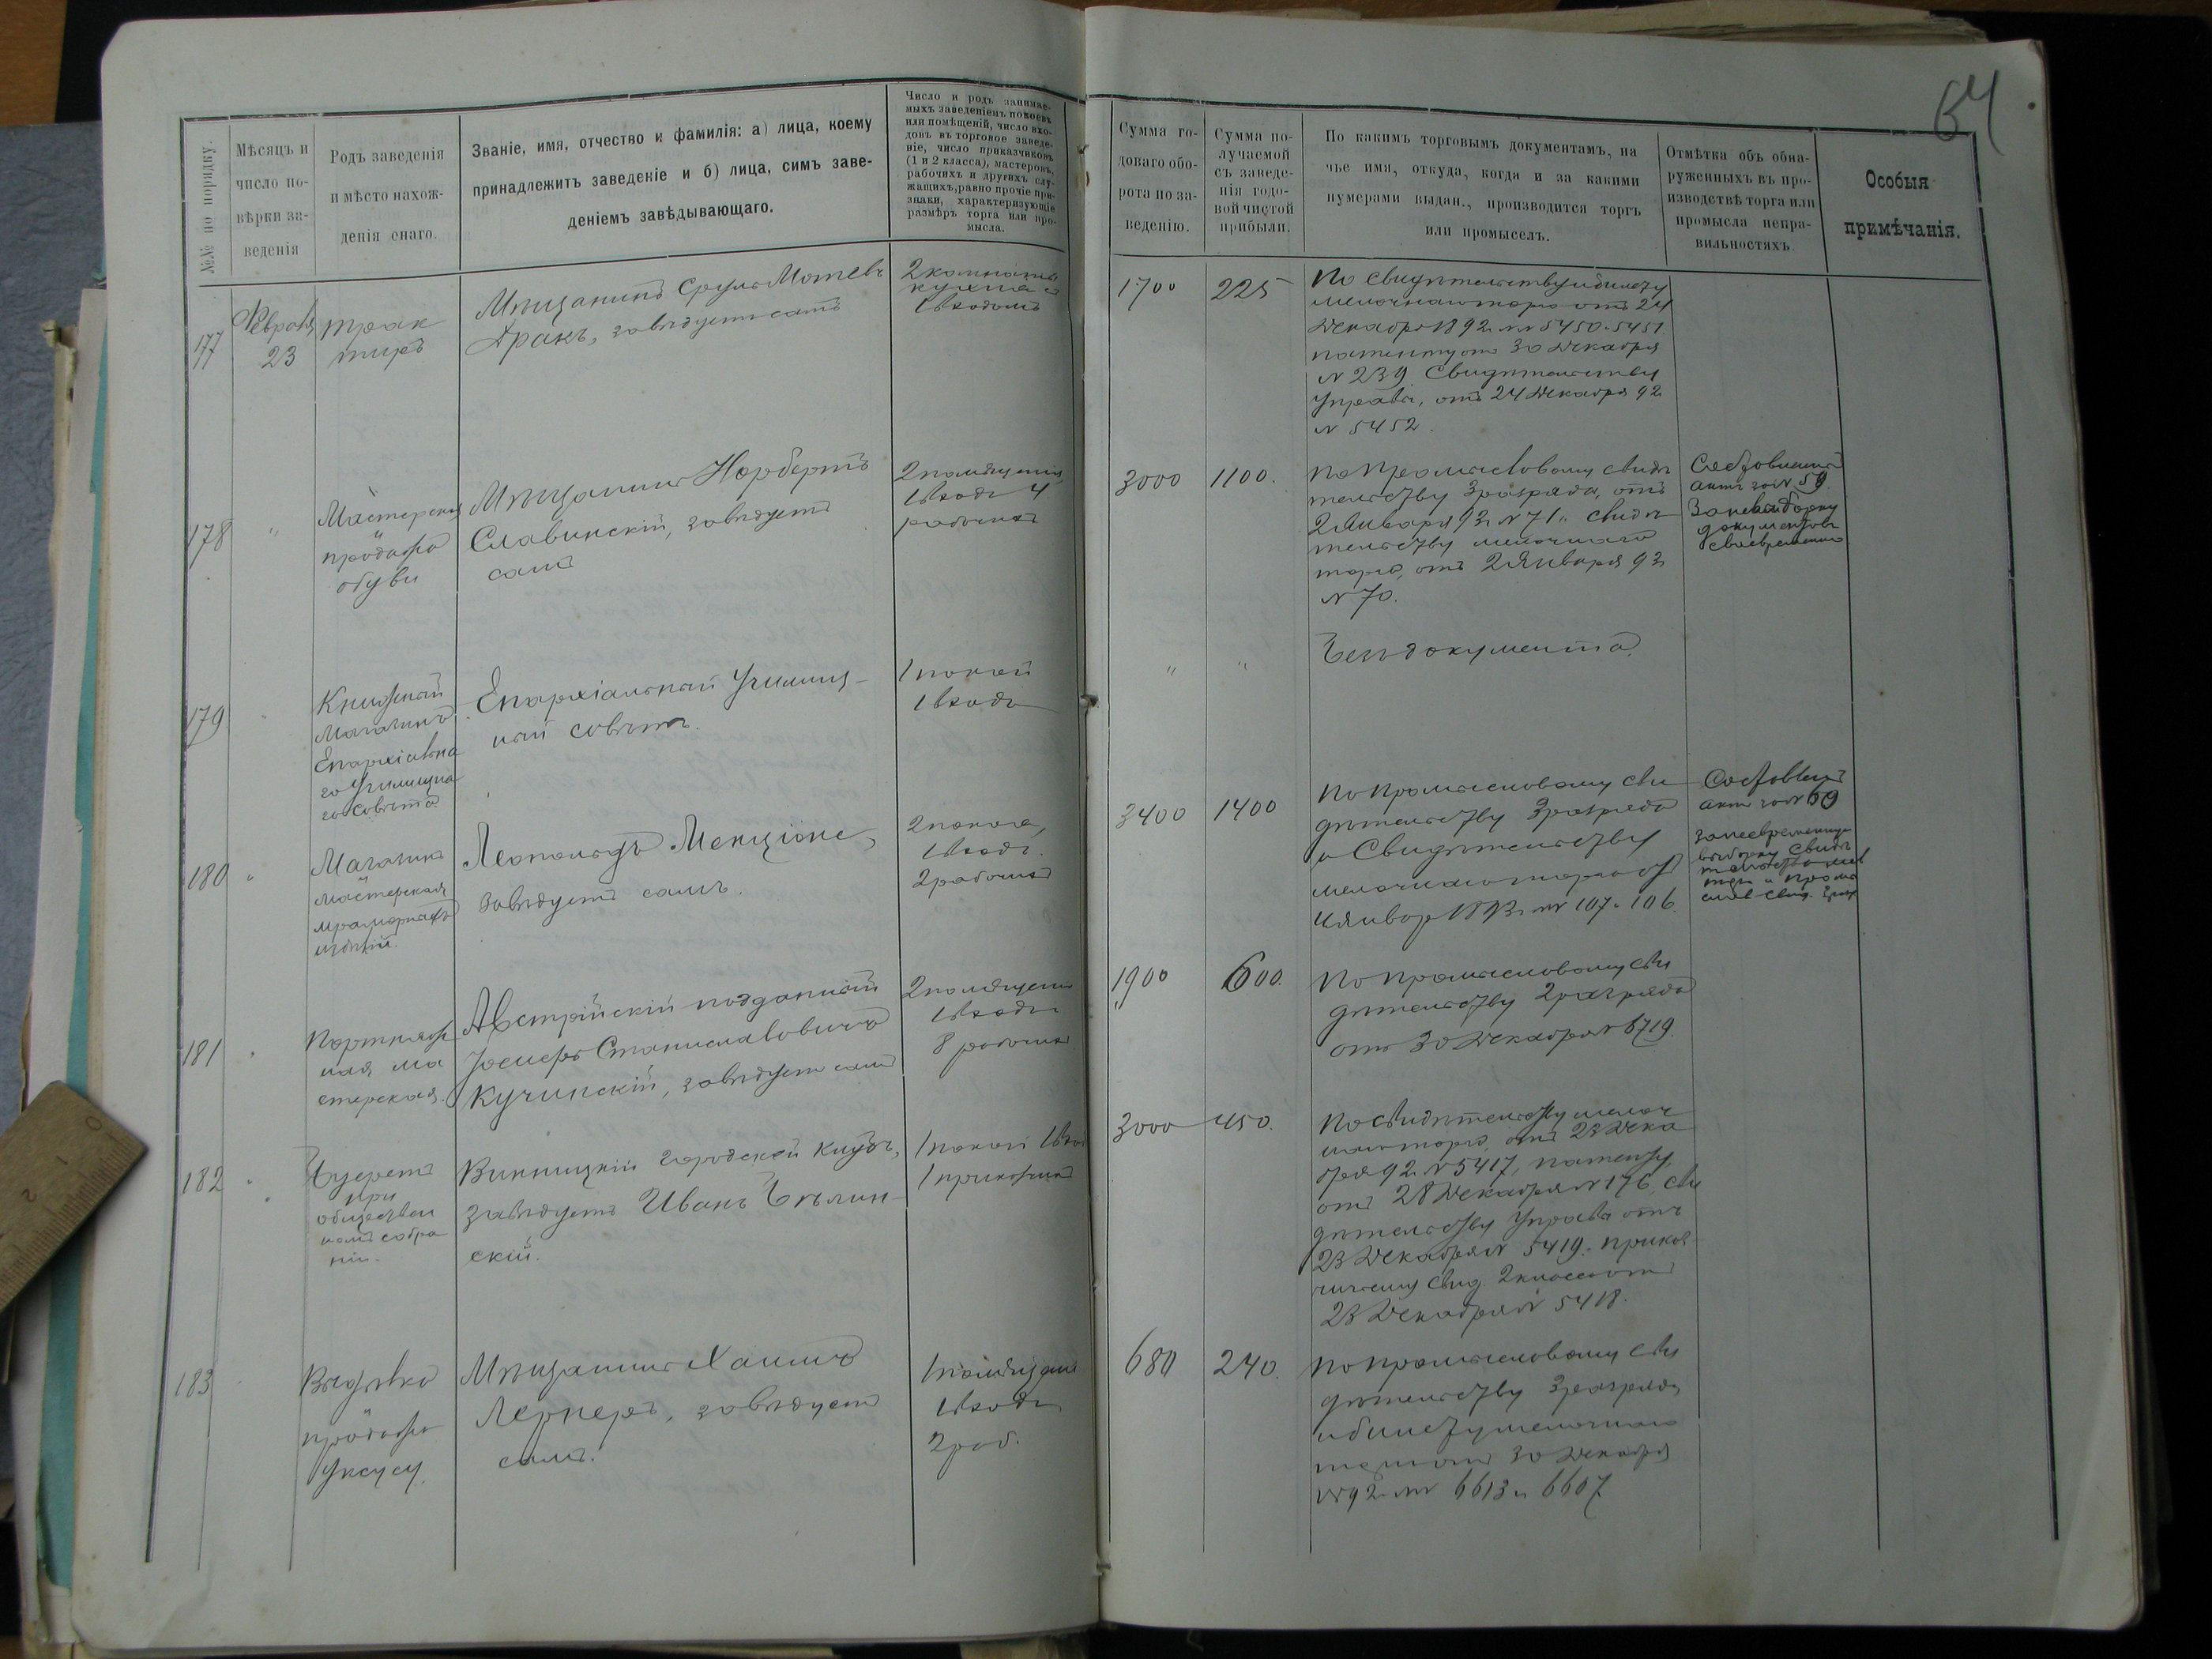 64
№№ по порядку.
Мѣсяцъ и
число по-
вѣрки за-
веденія
Родъ заведенія
и мѣсто нахож-
денія онаго.
Званіе, имя, отчество и фамилія: а) лица, коему
принадлежитъ заведеніе и б) лица, симъ заве-
деніемъ завѣдывающаго.
Число и родъ занимае-
мыхъ заведеніемъ покоевъ
или помѣщеній, число вхо-
довъ въ торговое заведе-
ніе, число приказчиковъ
(1 и 2 класса), мастеровъ,
рабочихъ и другихъ слу-
жащихъ, равно прочіе при-
знаки, характеризующіе
размѣръ торга или про-
мысла.
Сумма го-
доваго обо-
рота по за-
веденію.
Сумма по-
лучаемой
съ заведе-
нія годо-
вой чистой
прибыли.
По какимъ торговымъ документамъ, на
чье имя, откуда, когда и за какими
нумерами выдан., производится торгъ
или промыселъ.
Отмѣтка объ обна-
руженныхъ въ про-
изводствѣ торга или
промысла непра-
вильностяхъ
Особыя
примѣчанія.
177
Февраля
23
трак
тиръ
Мѣщанинъ Сруль Мошевъ
Дракъ, завѣдуетъ самъ
2 комнаты
кухня съ
1 входомъ
1700
225
По свидѣтельству и билету
мелочнаго торга отъ 24
Декабря 1892 г. №№ 5450 и 5451.
патенту отъ 30 Декабря
№ 239. Свидѣтельству
Управы, отъ 24 Декабря 92
№ 5452.
178
"
Мастерская
и
продажа
обуви
Мѣщанинъ Норбертъ
Славинскій, завѣдуетъ
самъ
2 помѣщенія
1 входъ 4
рабочихъ
3000
1100.
По Промысловому свидѣ
тельству 3 разряда, отъ
2 Января 93 г. № 71 и свидѣ
тельству мелочнаго
торга, отъ 2 Января 93 г.
№ 70.
Составленъ
актъ за № 59.
За невыборку
документовъ
своевременно
179
"
Книжный
магазинъ
Епархіальна
го Училищна
го Совѣта
Епархіальный Училищ-
ный совѣтъ.
1 покой
1 входъ
"
"
Безъ документа.
180
"
Магазинъ
и
мастерская
мраморныхъ
издѣлій.
Леопольдъ Менціоне,
завѣдуетъ самъ.
2 покоя,
1 входъ.
2 рабочихъ
3400
1400
По Промысловому сви
дѣтельству 3 разряда
и Свидѣтельству
мелочнаго торга отъ
4 Январ 1893 г. №№ 107 и 106.
Составленъ
актъ за № 60
за несвременную
выборку свидѣ
тельства мел
торг и промы
слов. свид. 3 разр
181
"
Портняж
ная ма
стерская.
Австрійскій подданный
Іосифъ Станиславовичъ
Кучинскій, завѣдуетъ самъ
2 помѣщенія
1 входъ
8 рабочихъ
1900
600.
По промысловому сви
дѣтельству 2 разряда
отъ 30 Декабря № 6719.
182
"
Буфетъ
при
обществен
номъ собра
ніи.
Винницкій городской клубъ,
завѣдуетъ Иванъ Бѣлин-
скій.
1 покой 1 вход
1 прикащикъ
3000
450.
По свидѣтельству мелоч
наго торга, отъ 23 Дека
бря 92 № 5417, патенту
отъ 28 Декабря № 176, сви
дѣтельству Управы отъ
23 Декабря № 5419. Приказ
чичьему свид. 2 класса отъ
23 Декабря № 5418.
183
Выдѣлка
и
продажа
Уксусу.
Мѣщанинъ Хаимъ
Лернеръ, завѣдуетъ
самъ.
1 помѣщеніе
1 входъ
2 раб.
680
240.
По промысловому сви
дѣтельству 3 разряда
и билету мелочнаго
торга отъ 30 Декабря
1892 №№ 6613 и 6607